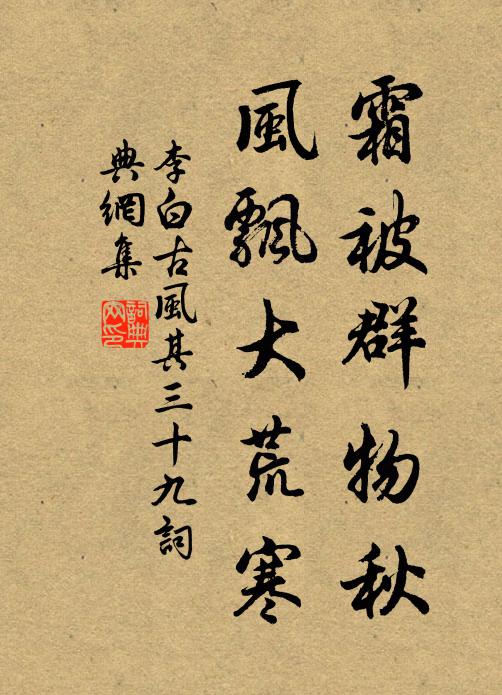 霜被群物秋
風飄大荒寒
李白古風其三十九詞
典網集
詞典
网印